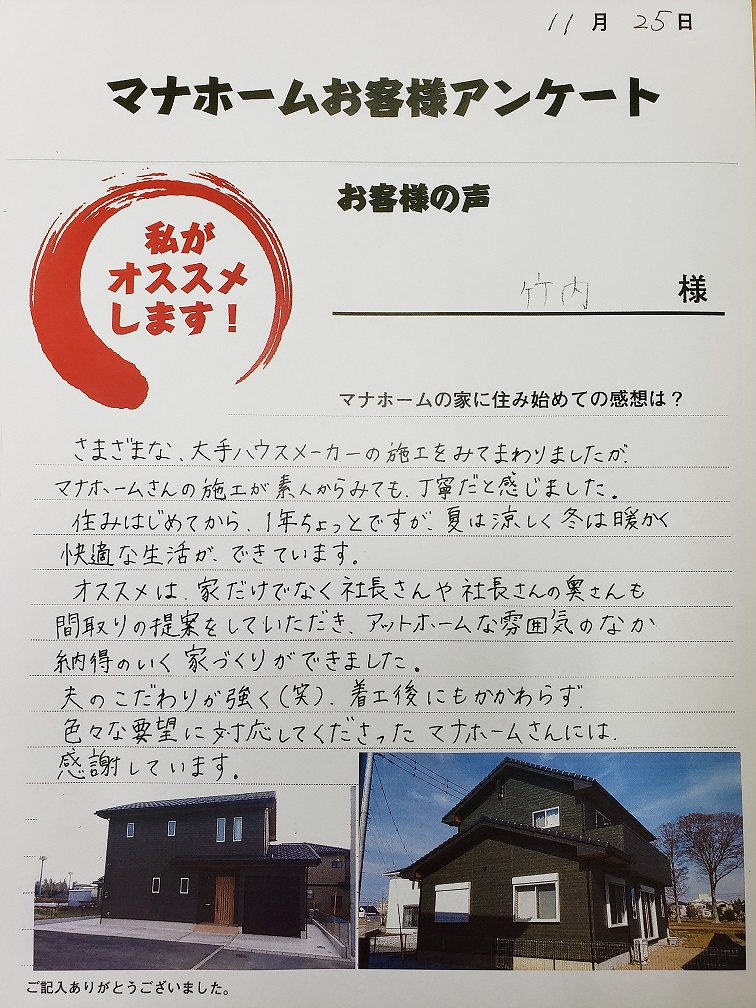 11月 25日
マナホームお客様アンケート
私が
オススメ
します！
お客様の声
竹内 様
マナホームの家に住み始めての感想は？
さまざまな、大手ハウスメーカーの施工をみてまわりましたが、
マナホームさんの施工が素人からみても、丁寧だと感じました。
住みはじめてから、1年ちょっとですが、夏は涼しく冬は暖かく
快適な生活が、できています。
オススメは、家だけでなく社長さんや社長さんの奥さんも
間取りの提案をしていただき、アットホームな雰囲気のなか
納得のいく家づくりができました。
夫のこだわりが強く(笑)、着工後にもかかわらず、
色々な要望に対応してくださった マナホームさんには、
感謝しています。
ご記入ありがとうございました。